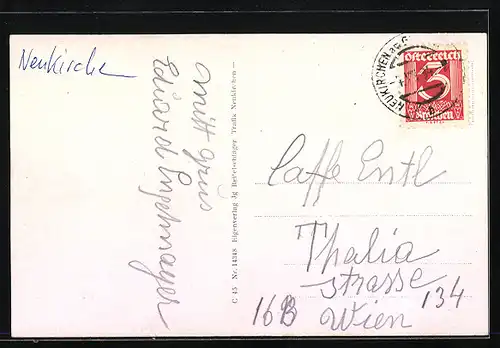 Neukirche
mitt grus
Eduard Engelmayer
C 45 Nr. 14348 Eigenverlag Jg Trafik Neukirchen
NEUKIRCHEN
Österreich
3
Kronen
Caffe Entl
Thalia
strasse
16B Wien 134